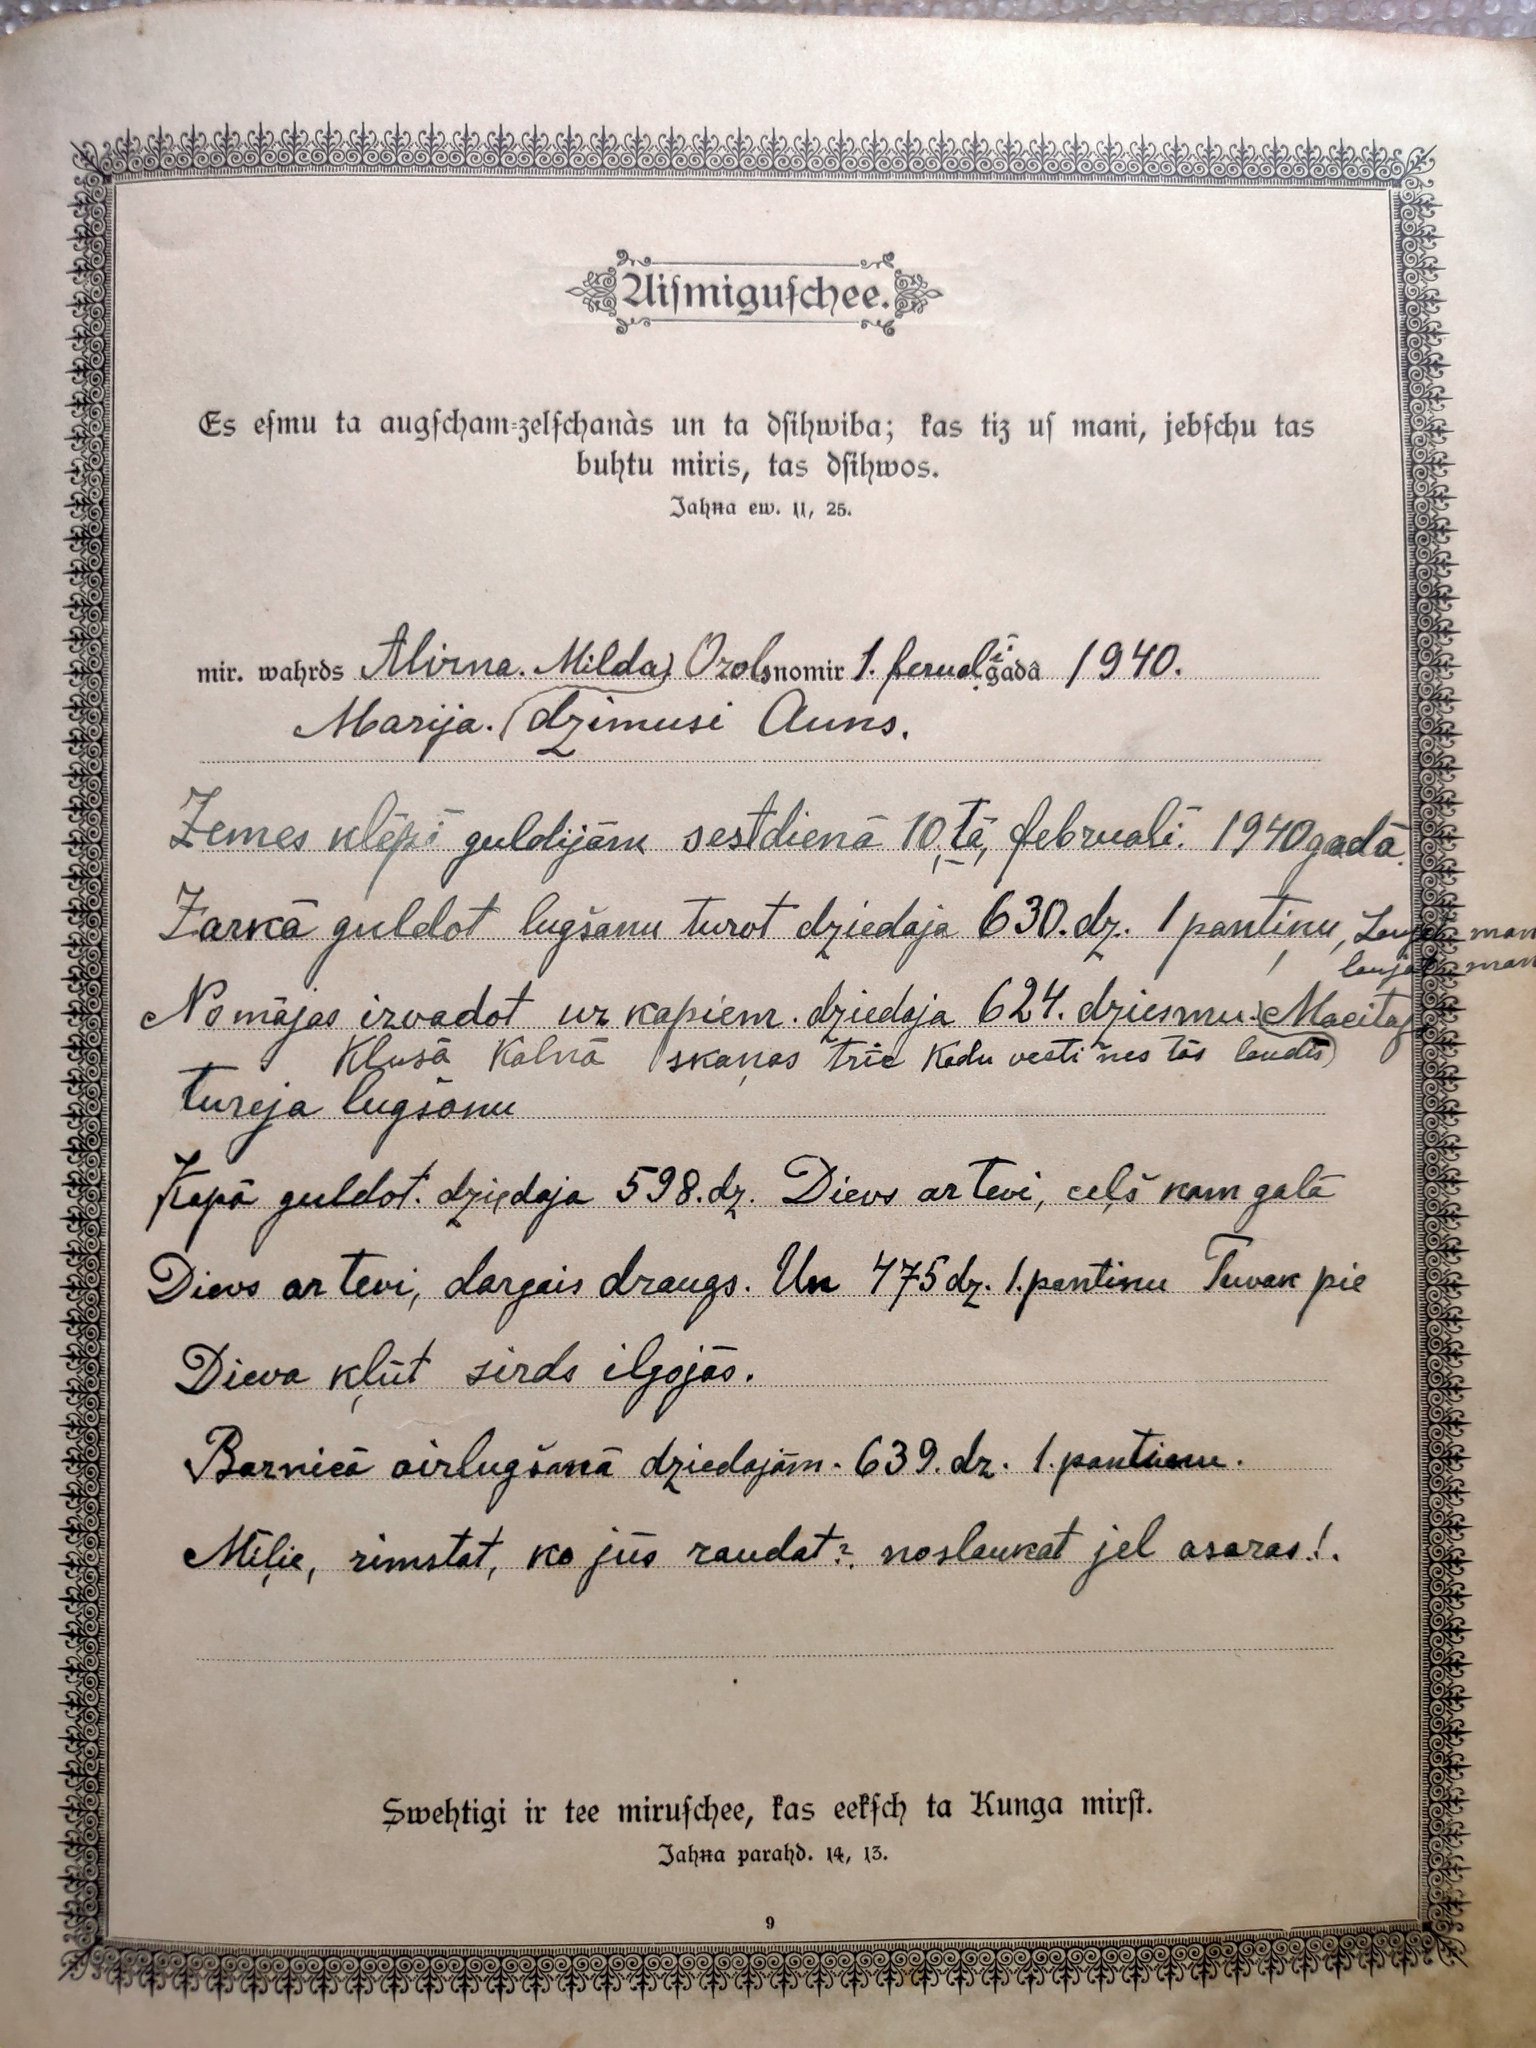 Aiſmiguſchee.
Es eſmu ta augſcham-zelſchanàs un ta dſihwiba; kas tiz uſ mani, jebſchu tas
buhtu miris, tas dſihwos.
Jahna ew. 11, 25.
mir. wahrds Milda Ozols nomir 1. gadâ 1940.
Marija. (dzimusi Auns.
Zemes klēpī guldijām sestdienā 10,tā, februalī. 1940 gadā.
Zarkā guldot lugšanu turot dziedaja 630. dz. 1 pantiņu,
man
man
No mājas izvadot uz kapiem. dziedaja 624. dziesmu. (Macitajs
Klusā Kalnā skaņas trīc Kadu vesti nes tās laudīs)
tureja lugšanu
Kapā guldot. dziedaja 598. dz. Dievs ar tevi, ceļš kam galā
Dievs ar tevi, dargais draugs. Un 475 dz. 1. pantinu Tuvak pie
Dieva kļūt sirds ilgojās.
Baznicā aizlugšanā dziedajām. 639. dz. 1. pantinu.
Mīļie, rimstat, ko jūs raudat? noslaukat jel asaras!.
Swehtigi ir tee miruſchee, kas eekſch ta Kunga mirſt.
Jahna parahd. 14, 13.
9